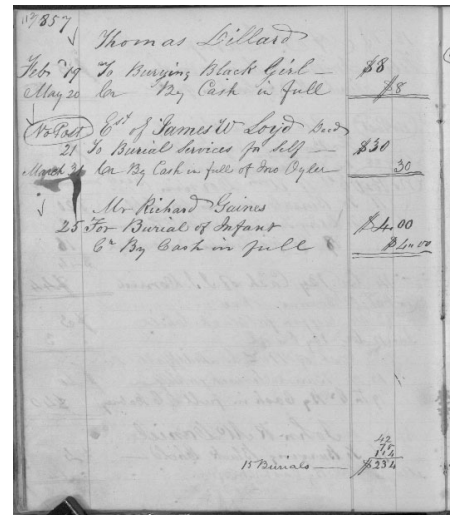 1857
Thomas Dillard
Feb 19 To Burying Black Girl — $8
May 20 Cr By Cash in full $8
No Post Est of James W Loyd Decd
21 To Burial Services for Self — $30
March 31 Cr By Cash in full of Jno Oyler 30
Mr Richard Gaines
25 For Burial of Infant $4.00
Cr By Cash in full $4.00
42
75
15 Burials — $234